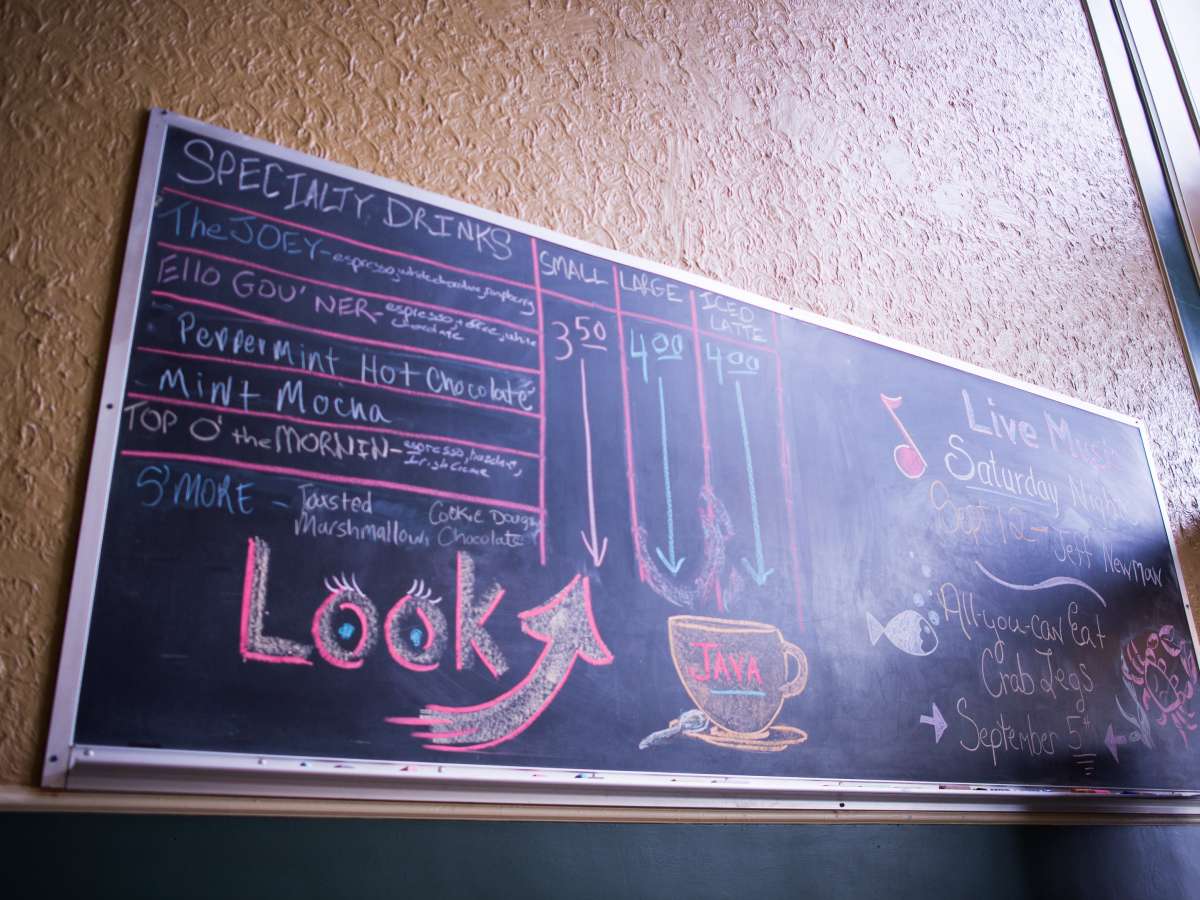 SPECIALTY DRINKS
The JOEY - espresso, white chocolate, raspberry
Ello GOU' NER - espresso, toffee, white
chocolate
Peppermint Hot Chocolate
Mint Mocha
TOP O' the MORNIN - espresso, hazelnut,
Irish Creme
S'MORE - Toasted
Marshmallow, Chocolate
Cookie Dough
SMALL
3.50
LARGE
4.00
ICED
LATTE
4.00
Look
JAVA
Live Music
Saturday Night
Sept 12 - Jeff Newman
All-you-can Eat
Crab Legs
September 5th